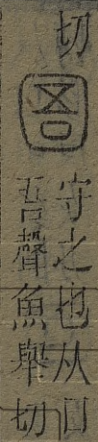 切
圄
守之也从囗
吾聲魚舉切